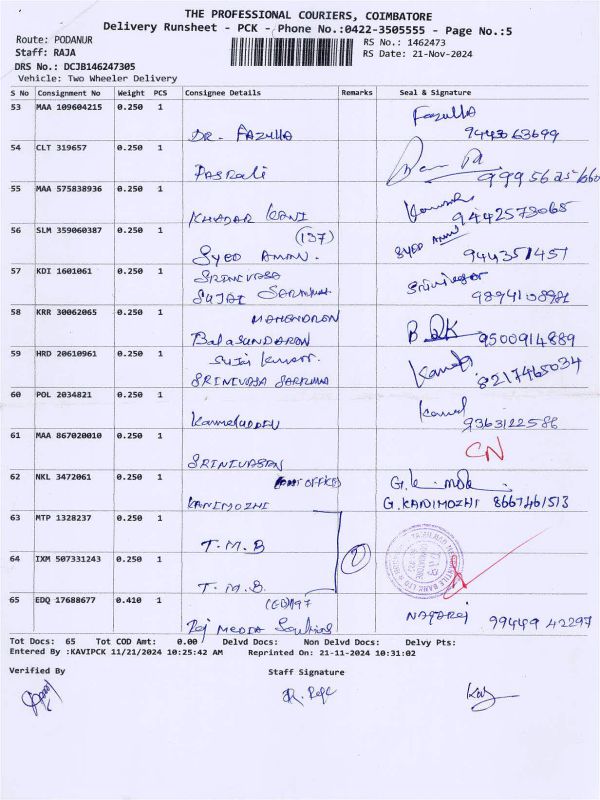 THE PROFESSIONAL COURIERS, COIMBATORE
Delivery Runsheet - PCK - Phone No.:0422-3505555 - Page No.:5
Route: PODANUR
RS No.: 1462473
Staff: RAJA
RS Date: 21-Nov-2024
DRS No.: DCJB146247305
Vehicle: Two Wheeler Delivery
S No Consignment No Weight PCS Consignee Details Remarks Seal & Signature
53 MAA 109604215 0.250 1 Fazulla
DR. FAZULLA 9443063699
54 CLT 319657 0.250 1
55 MAA 575838936 0.250 1
KHADAR KANI 9442573065
56 SLM 359060387 0.250 1 (137)
SYED AMAN. 944351457
57 KDI 1601061 0.250 1 SRINIVASA
SUJAI
58 KRR 30062065 0.250 1 MAHENDRAN
BalaSUNDARAN 9500914889
59 HRD 20610961 0.250 1 Sujai Kumar.
SRINIVASA SARMMA 8217465034
60 POL 2034821 0.250 1 Kamal
Kamaludden 9363122586
61 MAA 867020010 0.250 1 CN
SRINIVASAN
62 NKL 3472061 0.250 1 (POST OFFICE)
KANIMOZHI G.KANIMOZHI 8667461513
63 MTP 1328237 0.250 1
T.M.B
64 IXM 507331243 0.250 1 2
T.M.B.
65 EDQ 17688677 0.410 1 (ED)197
Raj MEDIA Solutions NAGARAJ 99449 42297
Tot Docs: 65 Tot COD Amt: 0.00 Delvd Docs: Non Delvd Docs: Delvy Pts:
Entered By :KAVIPCK 11/21/2024 10:25:42 AM Reprinted On: 21-11-2024 10:31:02
Verified By Staff Signature